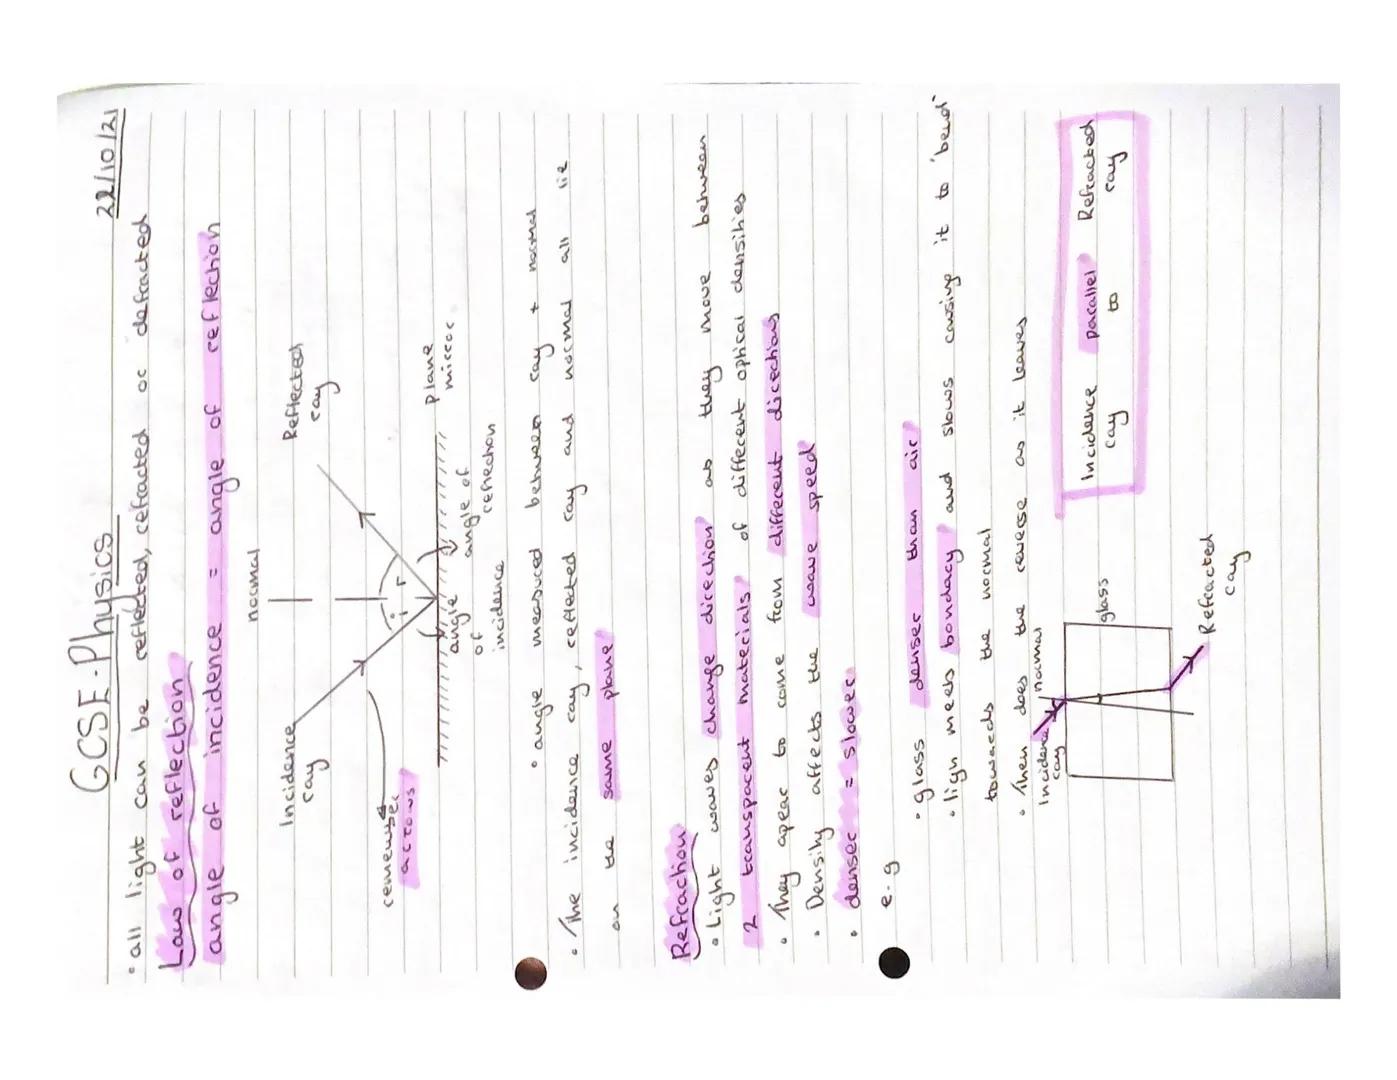 GCSE - Physics
22/10/21
• all light can be reflected, refracted or defracted
Law of reflection
angle of incidence = angle of reflection
normal
Incidence
ray
Reflected
ray
i
r
remember
arrows
plane
mirror.
angle
of
incidence
angle of
reflection
• angle measured between ray + normal
• The incidence ray, reflected ray and normal all lie
on the same plane
Refraction
• Light waves change direction as they move between
2 transparent materials of different optical densities
• They apear to come from different directions
• Density affects the wave speed
• denser = slower
e.g
• glass denser than air
• ligh meets bondary and slows causing it to 'bend'
towards the normal
• Then does the reverse as it leaves
Incidence
ray
normal
glass
Refracted
ray
Incidence parallel Refracted
ray to ray